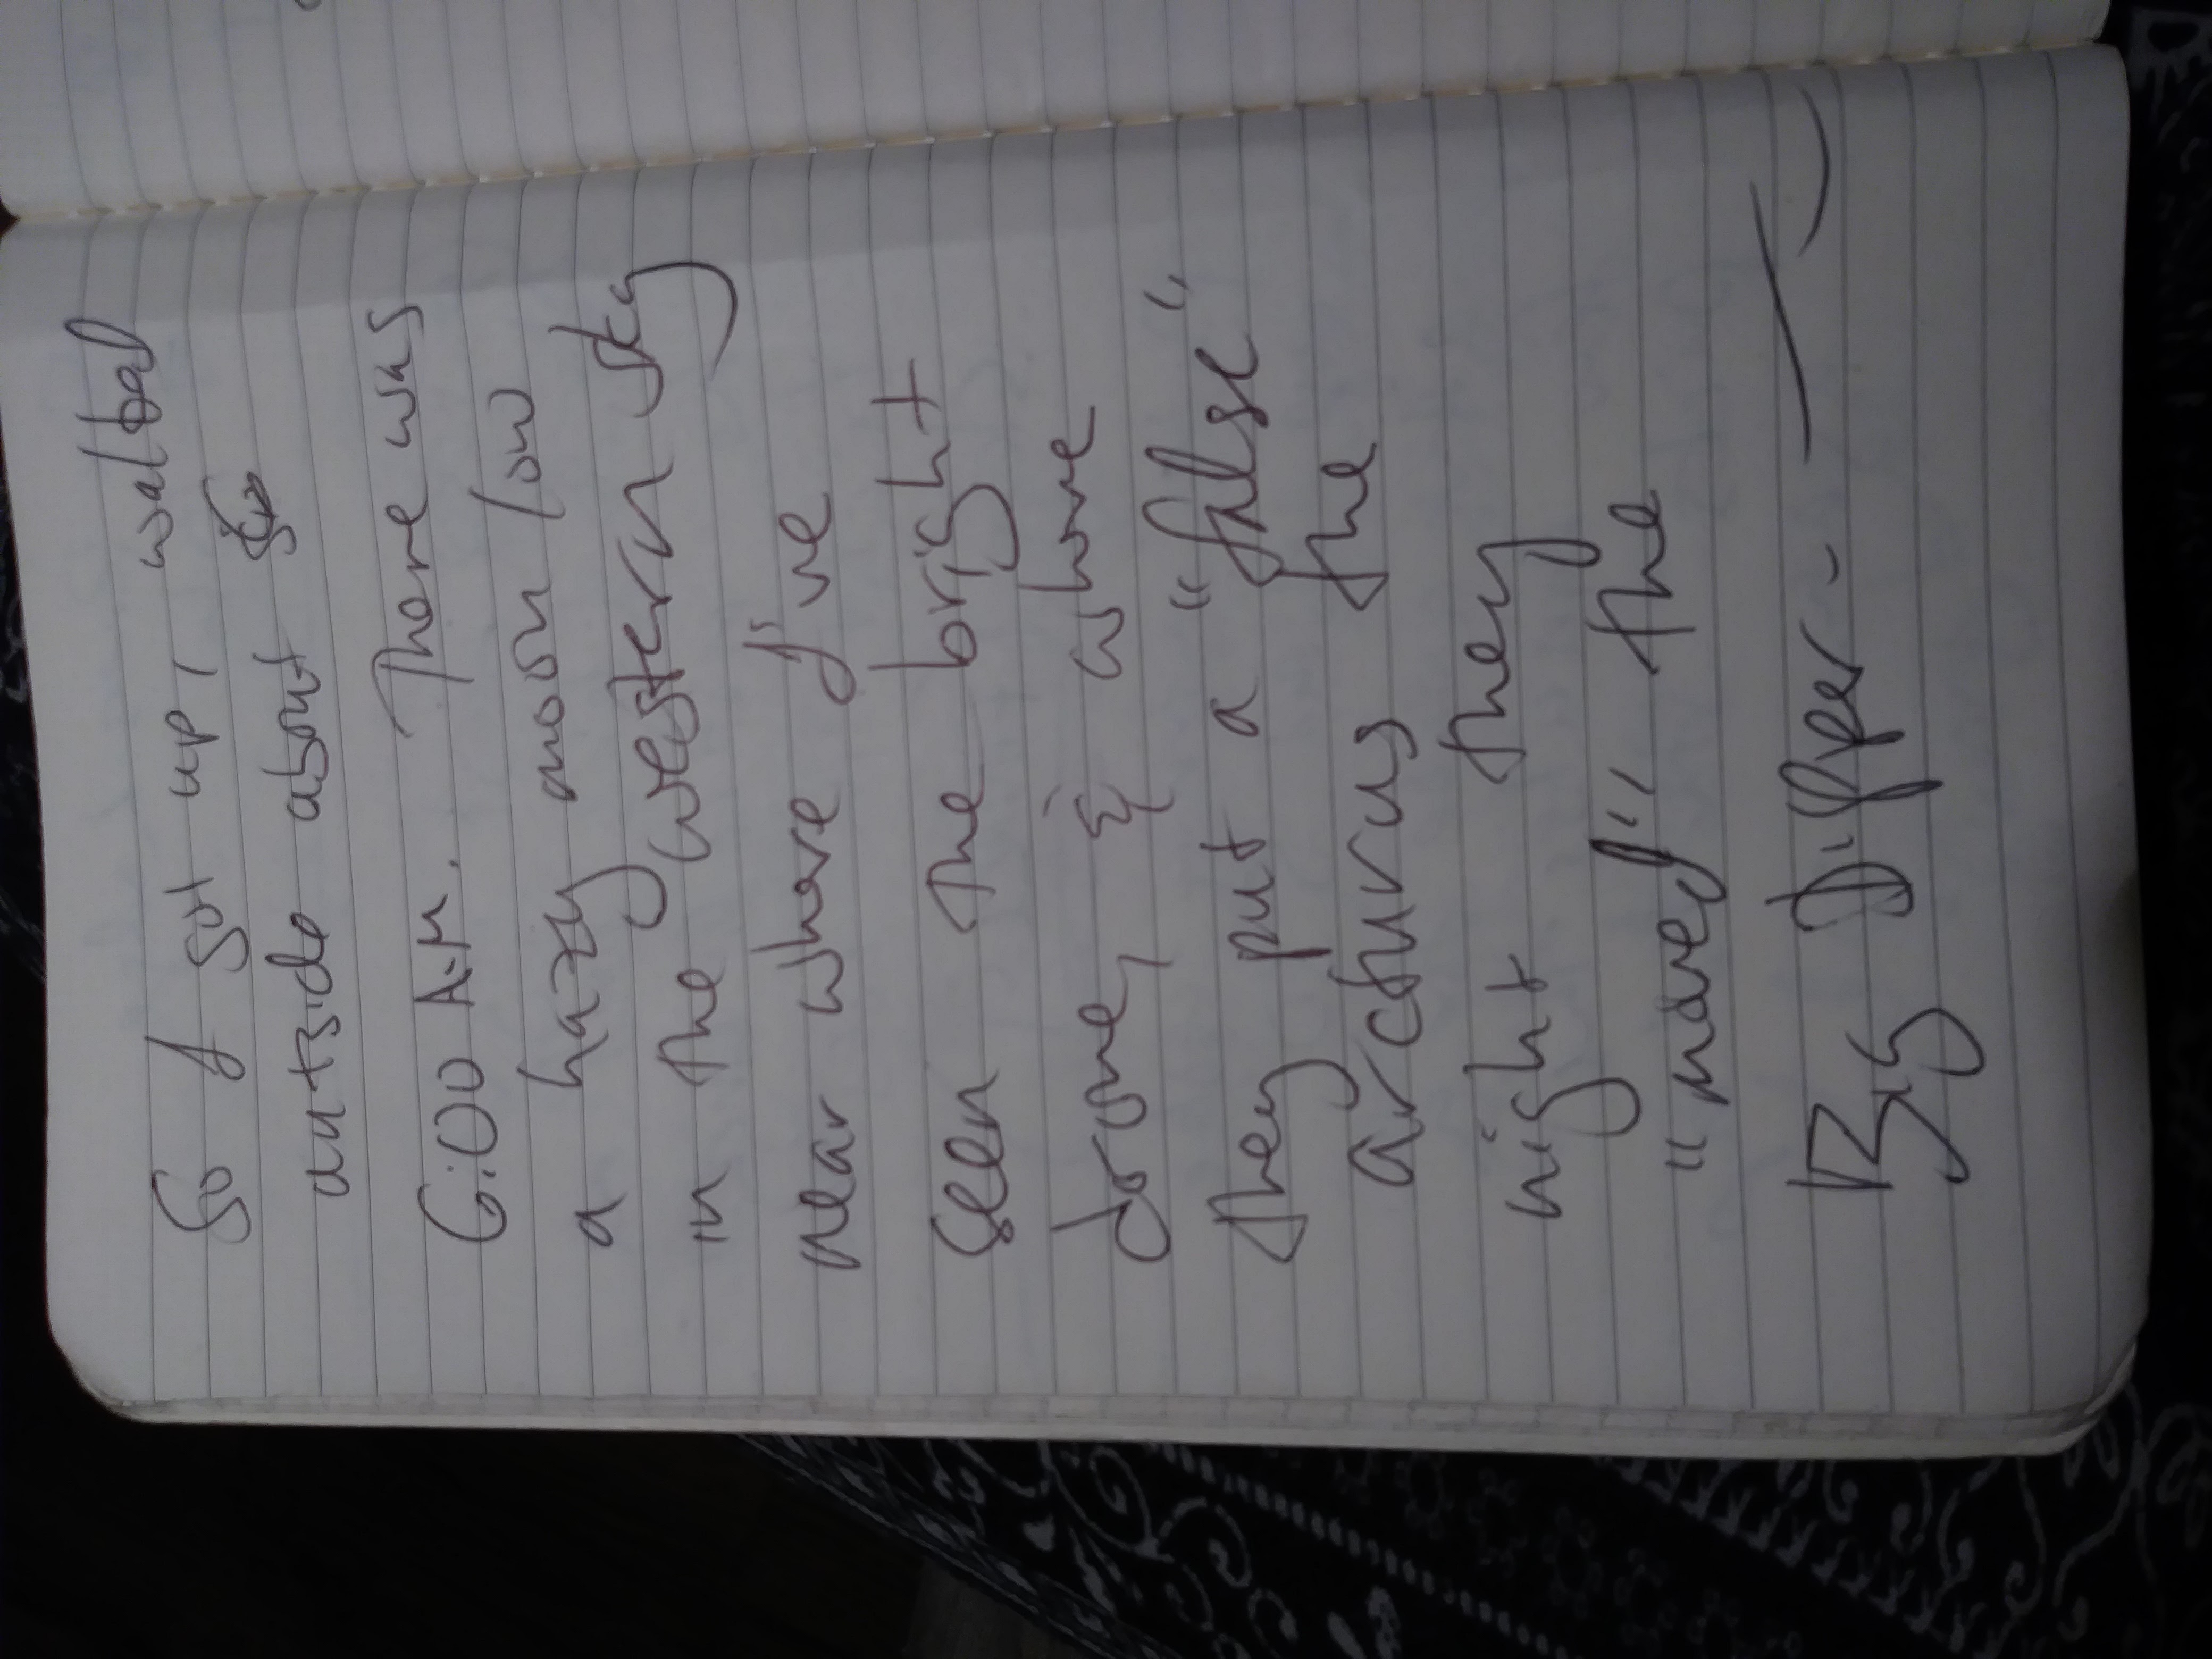 So I got up, walked
outside about
6:00 A.M. There was
a hazy moon low
in the western sky
near where I've
seen the bright
drone, & where
they put a "false"
arcturus the
night they
"moved" the
Big Dipper -